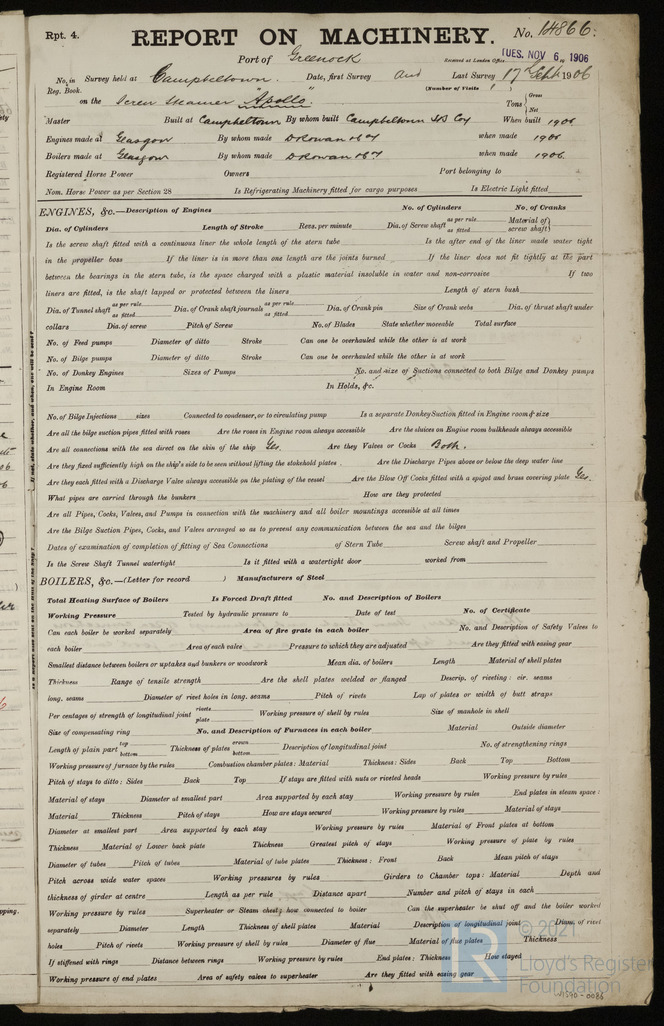 Rpt. 4.
REPORT ON MACHINERY.
No. 14866.
Port of Greenock
Received at London Office TUES. NOV 6. 1906
No. in Survey held at Campbeltown. Date, first Survey Last Survey 17th Sept. 1906
Reg. Book. (Number of Visits )
on the Screw Steamer "Apollo". Tons { Gross Net
Master Built at Campbeltown By whom built Campbeltown SB Coy When built 1906
Engines made at Glasgow By whom made D Rowan & Co when made 1906
Boilers made at Glasgow By whom made D Rowan & Co when made 1906.
Registered Horse Power Owners Port belonging to
Nom. Horse Power as per Section 28 Is Refrigerating Machinery fitted for cargo purposes Is Electric Light fitted
ENGINES, &c.—Description of Engines No. of Cylinders No. of Cranks
Dia. of Cylinders Length of Stroke Revs. per minute Dia. of Screw shaft as per rule as fitted Material of screw shaft
Is the screw shaft fitted with a continuous liner the whole length of the stern tube Is the after end of the liner made water tight
in the propeller boss If the liner is in more than one length are the joints burned If the liner does not fit tightly at the part
between the bearings in the stern tube, is the space charged with a plastic material insoluble in water and non-corrosive If two
liners are fitted, is the shaft lapped or protected between the liners Length of stern bush
Dia. of Tunnel shaft as per rule as fitted Dia. of Crank shaft journals as per rule as fitted Dia. of Crank pin Size of Crank webs Dia. of thrust shaft under
collars Dia. of screw Pitch of Screw No. of Blades State whether moveable Total surface
No. of Feed pumps Diameter of ditto Stroke Can one be overhauled while the other is at work
No. of Bilge pumps Diameter of ditto Stroke Can one be overhauled while the other is at work
No. of Donkey Engines Sizes of Pumps No. and size of Suctions connected to both Bilge and Donkey pumps
In Engine Room In Holds, &c.
No. of Bilge Injections sizes Connected to condenser, or to circulating pump Is a separate Donkey Suction fitted in Engine room & size
Are all the bilge suction pipes fitted with roses Are the roses in Engine room always accessible Are the sluices on Engine room bulkheads always accessible
Are all connections with the sea direct on the skin of the ship Yes. Are they Valves or Cocks Both.
Are they fixed sufficiently high on the ship's side to be seen without lifting the stokehold plates Are the Discharge Pipes above or below the deep water line
Are they each fitted with a Discharge Valve always accessible on the plating of the vessel Are the Blow Off Cocks fitted with a spigot and brass covering plate Yes.
What pipes are carried through the bunkers How are they protected
Are all Pipes, Cocks, Valves, and Pumps in connection with the machinery and all boiler mountings accessible at all times
Are the Bilge Suction Pipes, Cocks, and Valves arranged so as to prevent any communication between the sea and the bilges
Dates of examination of completion of fitting of Sea Connections of Stern Tube Screw shaft and Propeller
Is the Screw Shaft Tunnel watertight Is it fitted with a watertight door worked from
BOILERS, &c.—(Letter for record ) Manufacturers of Steel
Total Heating Surface of Boilers Is Forced Draft fitted No. and Description of Boilers
Working Pressure Tested by hydraulic pressure to Date of test No. of Certificate
Can each boiler be worked separately Area of fire grate in each boiler No. and Description of Safety Valves to
each boiler Area of each valve Pressure to which they are adjusted Are they fitted with easing gear
Smallest distance between boilers or uptakes and bunkers or woodwork Mean dia. of boilers Length Material of shell plates
Thickness Range of tensile strength Are the shell plates welded or flanged Descrip. of riveting: cir. seams
long. seams Diameter of rivet holes in long. seams Pitch of rivets Lap of plates or width of butt straps
Per centages of strength of longitudinal joint rivets plate Working pressure of shell by rules Size of manhole in shell
Size of compensating ring No. and Description of Furnaces in each boiler Material Outside diameter
Length of plain part top bottom Thickness of plates crown bottom Description of longitudinal joint No. of strengthening rings
Working pressure of furnace by the rules Combustion chamber plates: Material Thickness: Sides Back Top Bottom
Pitch of stays to ditto: Sides Back Top If stays are fitted with nuts or riveted heads Working pressure by rules
Material of stays Diameter at smallest part Area supported by each stay Working pressure by rules End plates in steam space:
Material Thickness Pitch of stays How are stays secured Working pressure by rules Material of stays
Diameter at smallest part Area supported by each stay Working pressure by rules Material of Front plates at bottom
Thickness Material of Lower back plate Thickness Greatest pitch of stays Working pressure of plate by rules
Diameter of tubes Pitch of tubes Material of tube plates Thickness: Front Back Mean pitch of stays
Pitch across wide water spaces Working pressures by rules Girders to Chamber tops: Material Depth and
thickness of girder at centre Length as per rule Distance apart Number and pitch of stays in each
Working pressure by rules Superheater or Steam chest; how connected to boiler Can the superheater be shut off and the boiler worked
separately Diameter Length Thickness of shell plates Material Description of longitudinal joint Diam. of rivet
holes Pitch of rivets Working pressure of shell by rules Diameter of flue Material of flue plates Thickness
If stiffened with rings Distance between rings Working pressure by rules End plates: Thickness How stayed
Working pressure of end plates Area of safety valves to superheater Are they fitted with easing gear
© 2021
Lloyd's Register
Foundation
W1590-0086